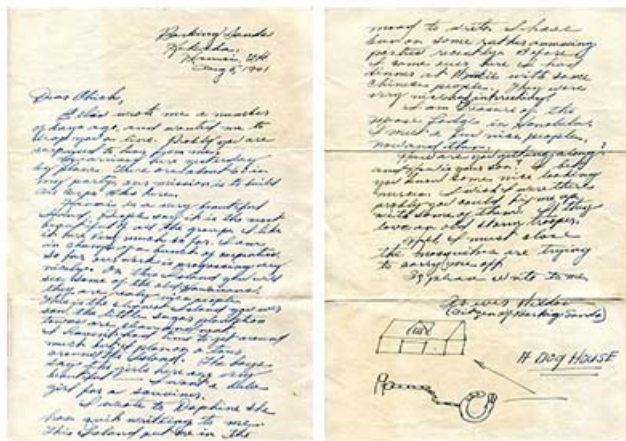 Barking Sands
Kekaha,
Kauai, T.H.
Aug 5, 1941
Dear Chick,
wrote me a number
of days ago, and wanted me to
drop you a line. Probly you are
surprised to hear from me.
I arrived here yesterday
by plane. There are about 60 in
my party, our mission is to build
an
Kauai is a very beautiful
Island, people say it is the most
beautiful of all the group. I like
it here fine, much so far. I am
in charge of a bunch of
so far our work is progressing
nicely. On this Island you will
see some of the old Hawaiians
they are really nice people
This is the cleanest Island you ever
saw, the little sugar plantation
towns are
I haven't had time to get around
much but I plan on a tour
around the Island. The boys
say the girls here are very
beautiful I want a hula
girl for a souvenir.
I wrote to Daphine She
has quit writting to me.
This Island put me in the
mood to write. I have
been on some rather amusing
parties recently. Before
I came over here I had
dinner at Waikiki with some
chinese people. They were
very nice and interesting.
I am of the
Moose Lodge in Honolulu.
I meet a few nice people,
now and then.
How are you getting along?
and how is your son? I bet
you know some nice looking
nurses. I wish I were there
probly you could fix me up
with some of them. If they
love an old storm trooper.
Well I must close
the mosquitoes are trying
to carry me off
So please write to me
(Citizen of Barking Sands)
A DOG HOUSE